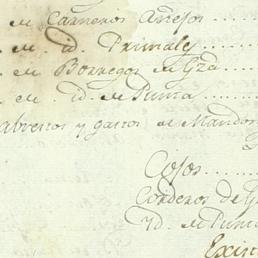 de Carneros Añejos ......
de id. Primales ......
de Borregos de Gza ....
de id. de Punta ......
Cabrestos y gastos de Mandos
Cojos ......
Corderos de G
Yd. de Punta
Exis